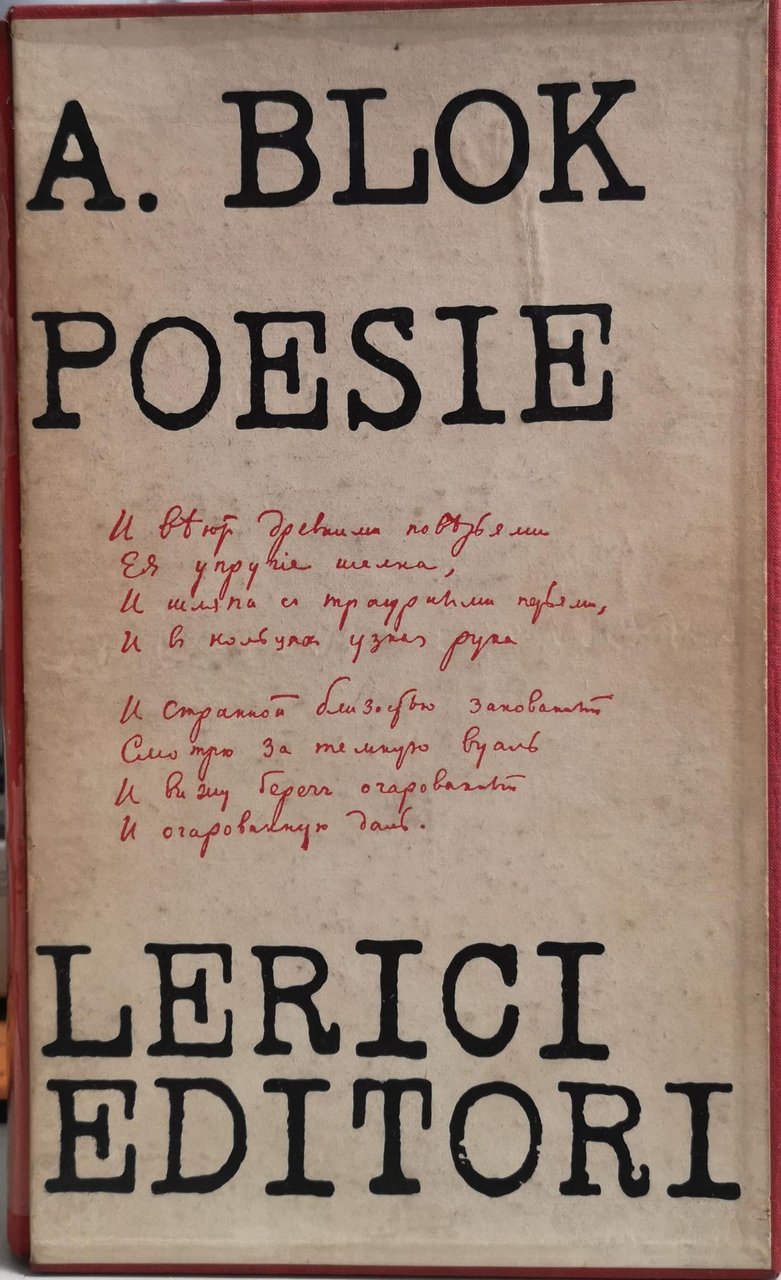 A. BLOK
POESIE
И вѣют древними повѣрьями
Ея упругіе шелка,
И шляпа с траурными перьями,
И в кольцах узкая рука
И странной близостью закованный
Смотрю за темную вуаль
И вижу берегъ очарованный
И очарованную даль.
LERICI
EDITORI